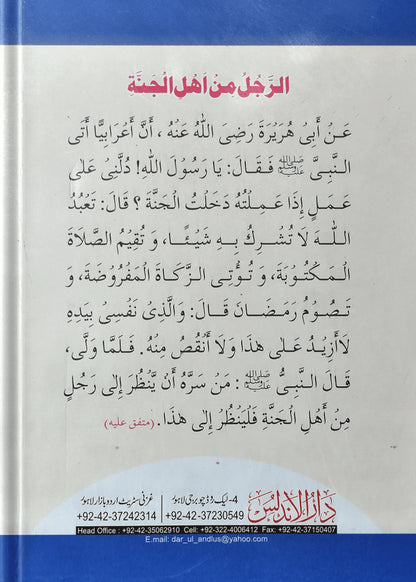 الرَّجُلُ مِنْ اَهْلِ الْجَنَّةِ
عَنْ أَبِى هُرَيْرَةَ رَضِىَ اللّٰهُ عَنْهُ ، أَنَّ أَعْرَابِيًّا أَتَى
النَّبِىَّ ﷺ فَقَالَ: يَا رَسُوْلَ اللّٰهِ! دُلَّنِىْ عَلَى
عَمَلٍ إِذَا عَمِلْتُهُ دَخَلْتُ الْجَنَّةَ ؟ قَالَ: تَعْبُدُ
اللّٰهَ لَا تُشْرِكُ بِهِ شَيْئًا، وَ تُقِيْمُ الصَّلَاةَ
الْمَكْتُوْبَةَ، وَ تُؤَتِى الزَّكَاةَ الْمَفْرُوْضَةَ، وَ
تَصُوْمُ رَمَضَانَ قَالَ: وَالَّذِىْ نَفْسِىْ بِيَدِهِ
لَا أَزِيْدُ عَلَى هٰذَا وَ لَا أَنْقُصُ مِنْهُ. فَلَمَّا وَلَّى،
قَالَ النَّبِىُّ ﷺ : مَنْ سَرَّهُ أَنْ يَّنْظُرَ إِلَى رَجُلٍ
مِنْ أَهْلِ الْجَنَّةِ فَلْيَنْظُرْ إِلَى هٰذَا. (متفق عليه)
دَارُ الْأَنْدَلُسْ
4- لیک روڈ چوبرجی لاہور غزنی سٹریٹ اردو بازار لاہور
+92-42-37230549 +92-42-37242314
Head Office : +92-42-35062910 Cell: +92-322-4006412 Fax: +92-42-37150407
E.mail: dar_ul_andlus@yahoo.com